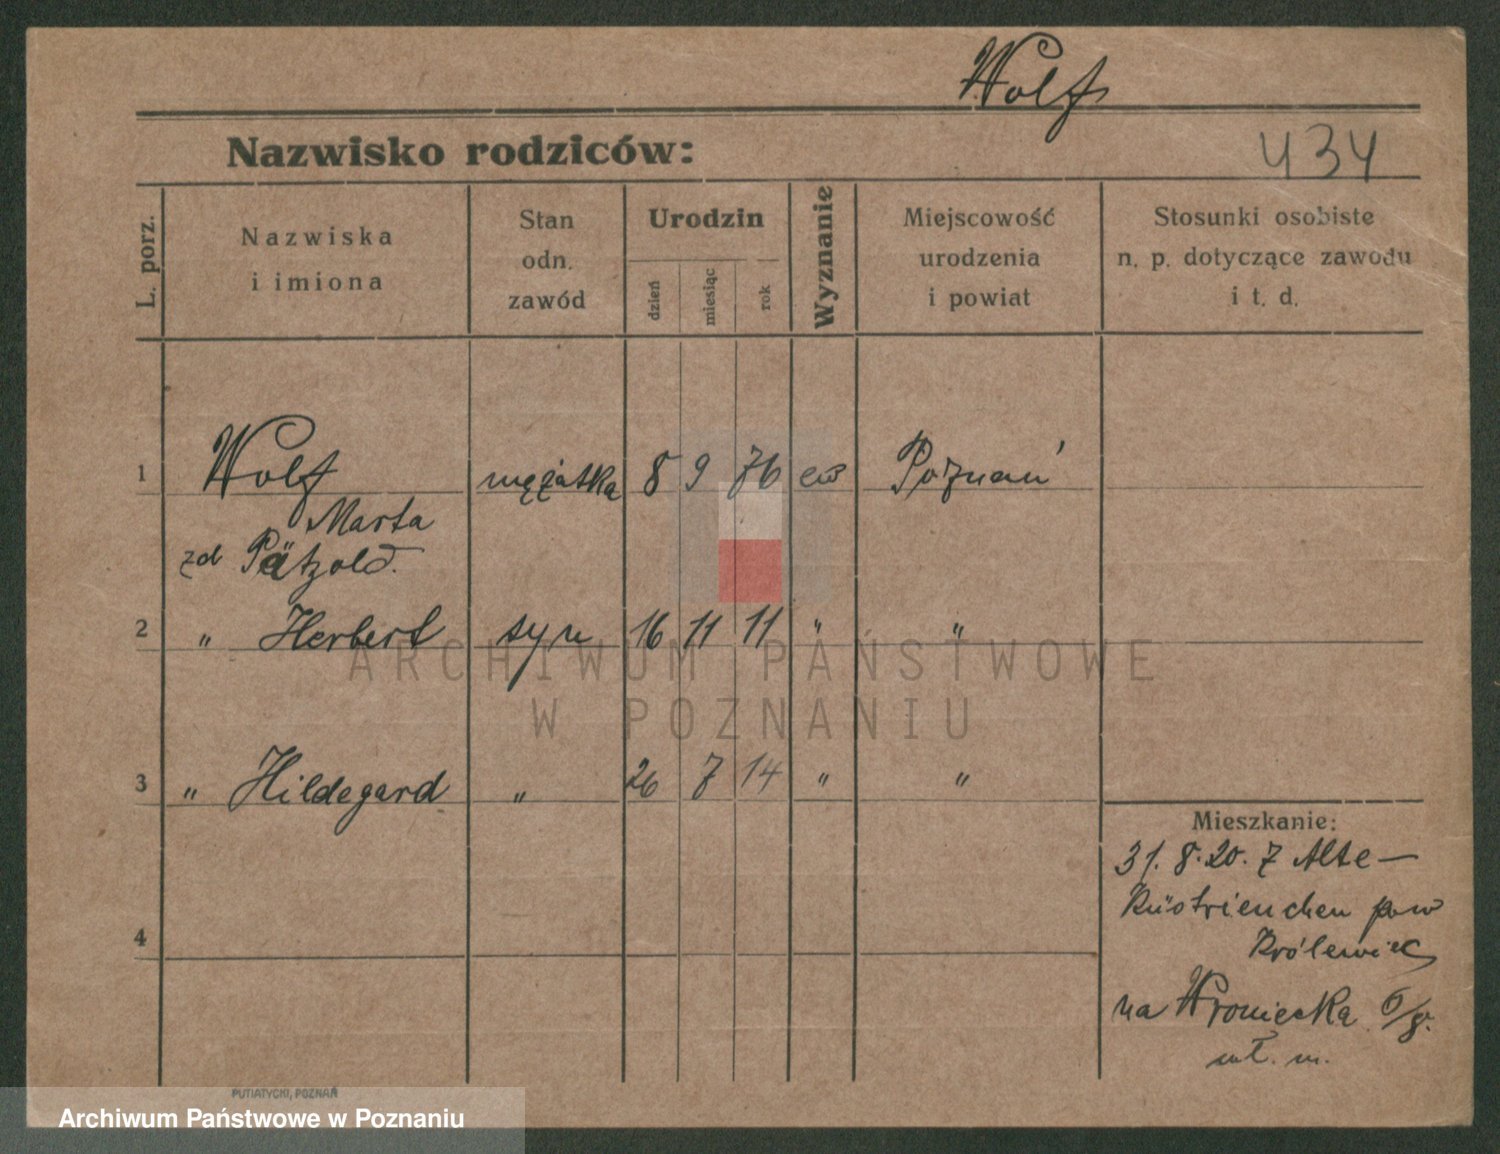 Wolf
Nazwisko rodziców:
434
L. porz.
Nazwiska
i imiona
Stan
odn.
zawód
Urodzin
dzień
miesiąc
rok
Wyznanie
Miejscowość
urodzenia
i powiat
Stosunki osobiste
n. p. dotyczące zawodu
i t. d.
1 Wolf mężatka 8 9 76 ew Poznań
Marta
zd Pätzold.
2 " Herbert syn 16 11 11 " "
ARCHIWUM PAŃSTWOWE
W POZNANIU
3 " Hildegard " 26 7 14 " "
Mieszkanie:
31.8.20. z Alte-
Küstrienchen pow
4
Królewiec
na Wroniecka 6/8.
wł. m.
PUTIATYCKI, POZNAŃ
Archiwum Państwowe w Poznaniu